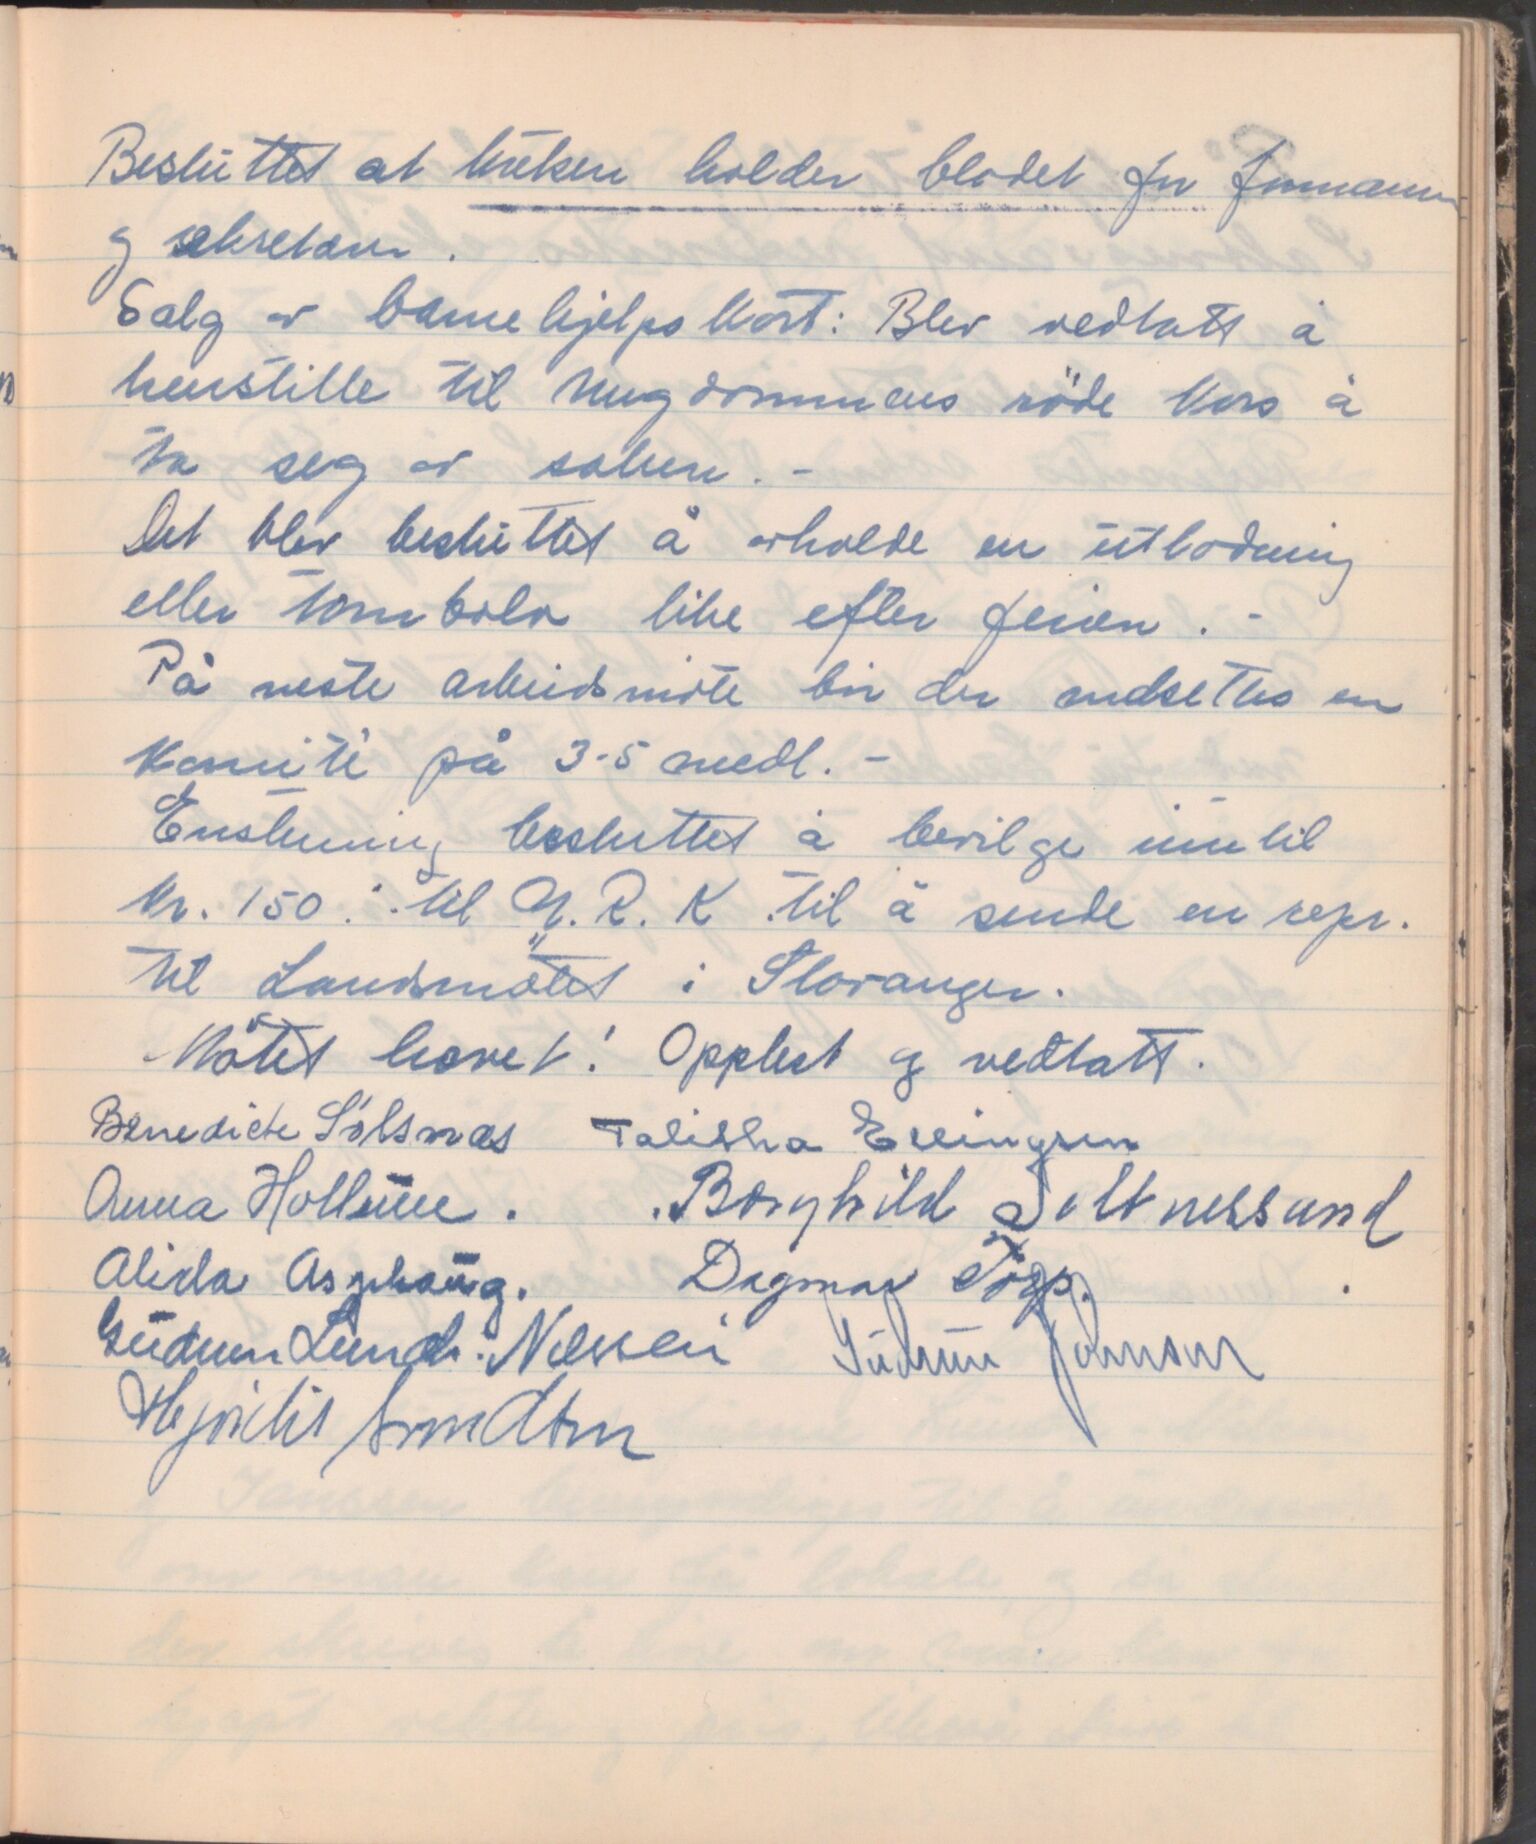 Besluttet at kreken holder bladet for formannen
og sekretæren.
Salg av barnehjelpskort: Blev vedtatt å
henstille til Ungdommens røde Kors å
ta seg av saken. -
Det blev besluttet å avholde en utlodning
eller tombola like efter ferien. -
På neste arbeidsmöte bör der nedsettes en
Komité på 3-5 medl. -
Enstemmig besluttet å bevilge inntil
kr. 150.- til U.R.K. til å sende en repr.
til Landsmötet i Stavanger.
Mötet hevet! Opplest og vedtatt.
Benedicte Sölsnæs Talitha Ellingsen
Anna Hollune. Borghild Saltnessand
Alida Asphaug. Dagmar Torp.
Gudrun Lund-Nilssen Gudrun Johnson
Hjördis Arndtzen